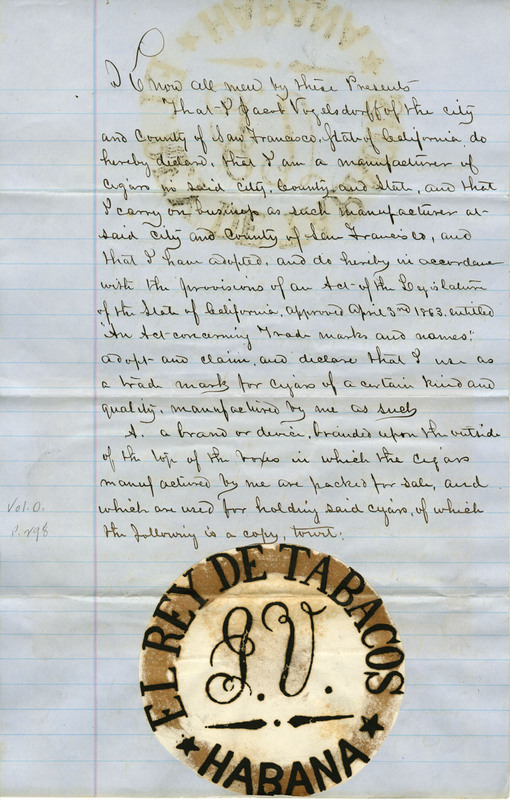 Know all men by these Presents
That I Jacob Vogelsdorff of the city
and County of San Francisco, State of California, do
hereby declare, that I am a manufacturer of
cigars in said City, County and State, and that
I carry on business as such manufacturer at
said City and County of San Francisco, and
that I have adopted, and do hereby in accordance
with the provisions of an Act of the Legislature
of the State of California, approved April 3rd 1863, entitled
"An Act concerning Trade marks and names."
adopt and claim, and declare that I use as
a trade mark for cigars of a certain kind and
quality, manufactured by me as such
A. a brand or device, branded upon the outside
of the top of the boxes in which the cigars
manufactured by me are packed for sale, and
which are used for holding said cigars, of which
the following is a copy, towit:
Vol. O.
P. 298
EL REY DE TABACOS
J.V.
HABANA